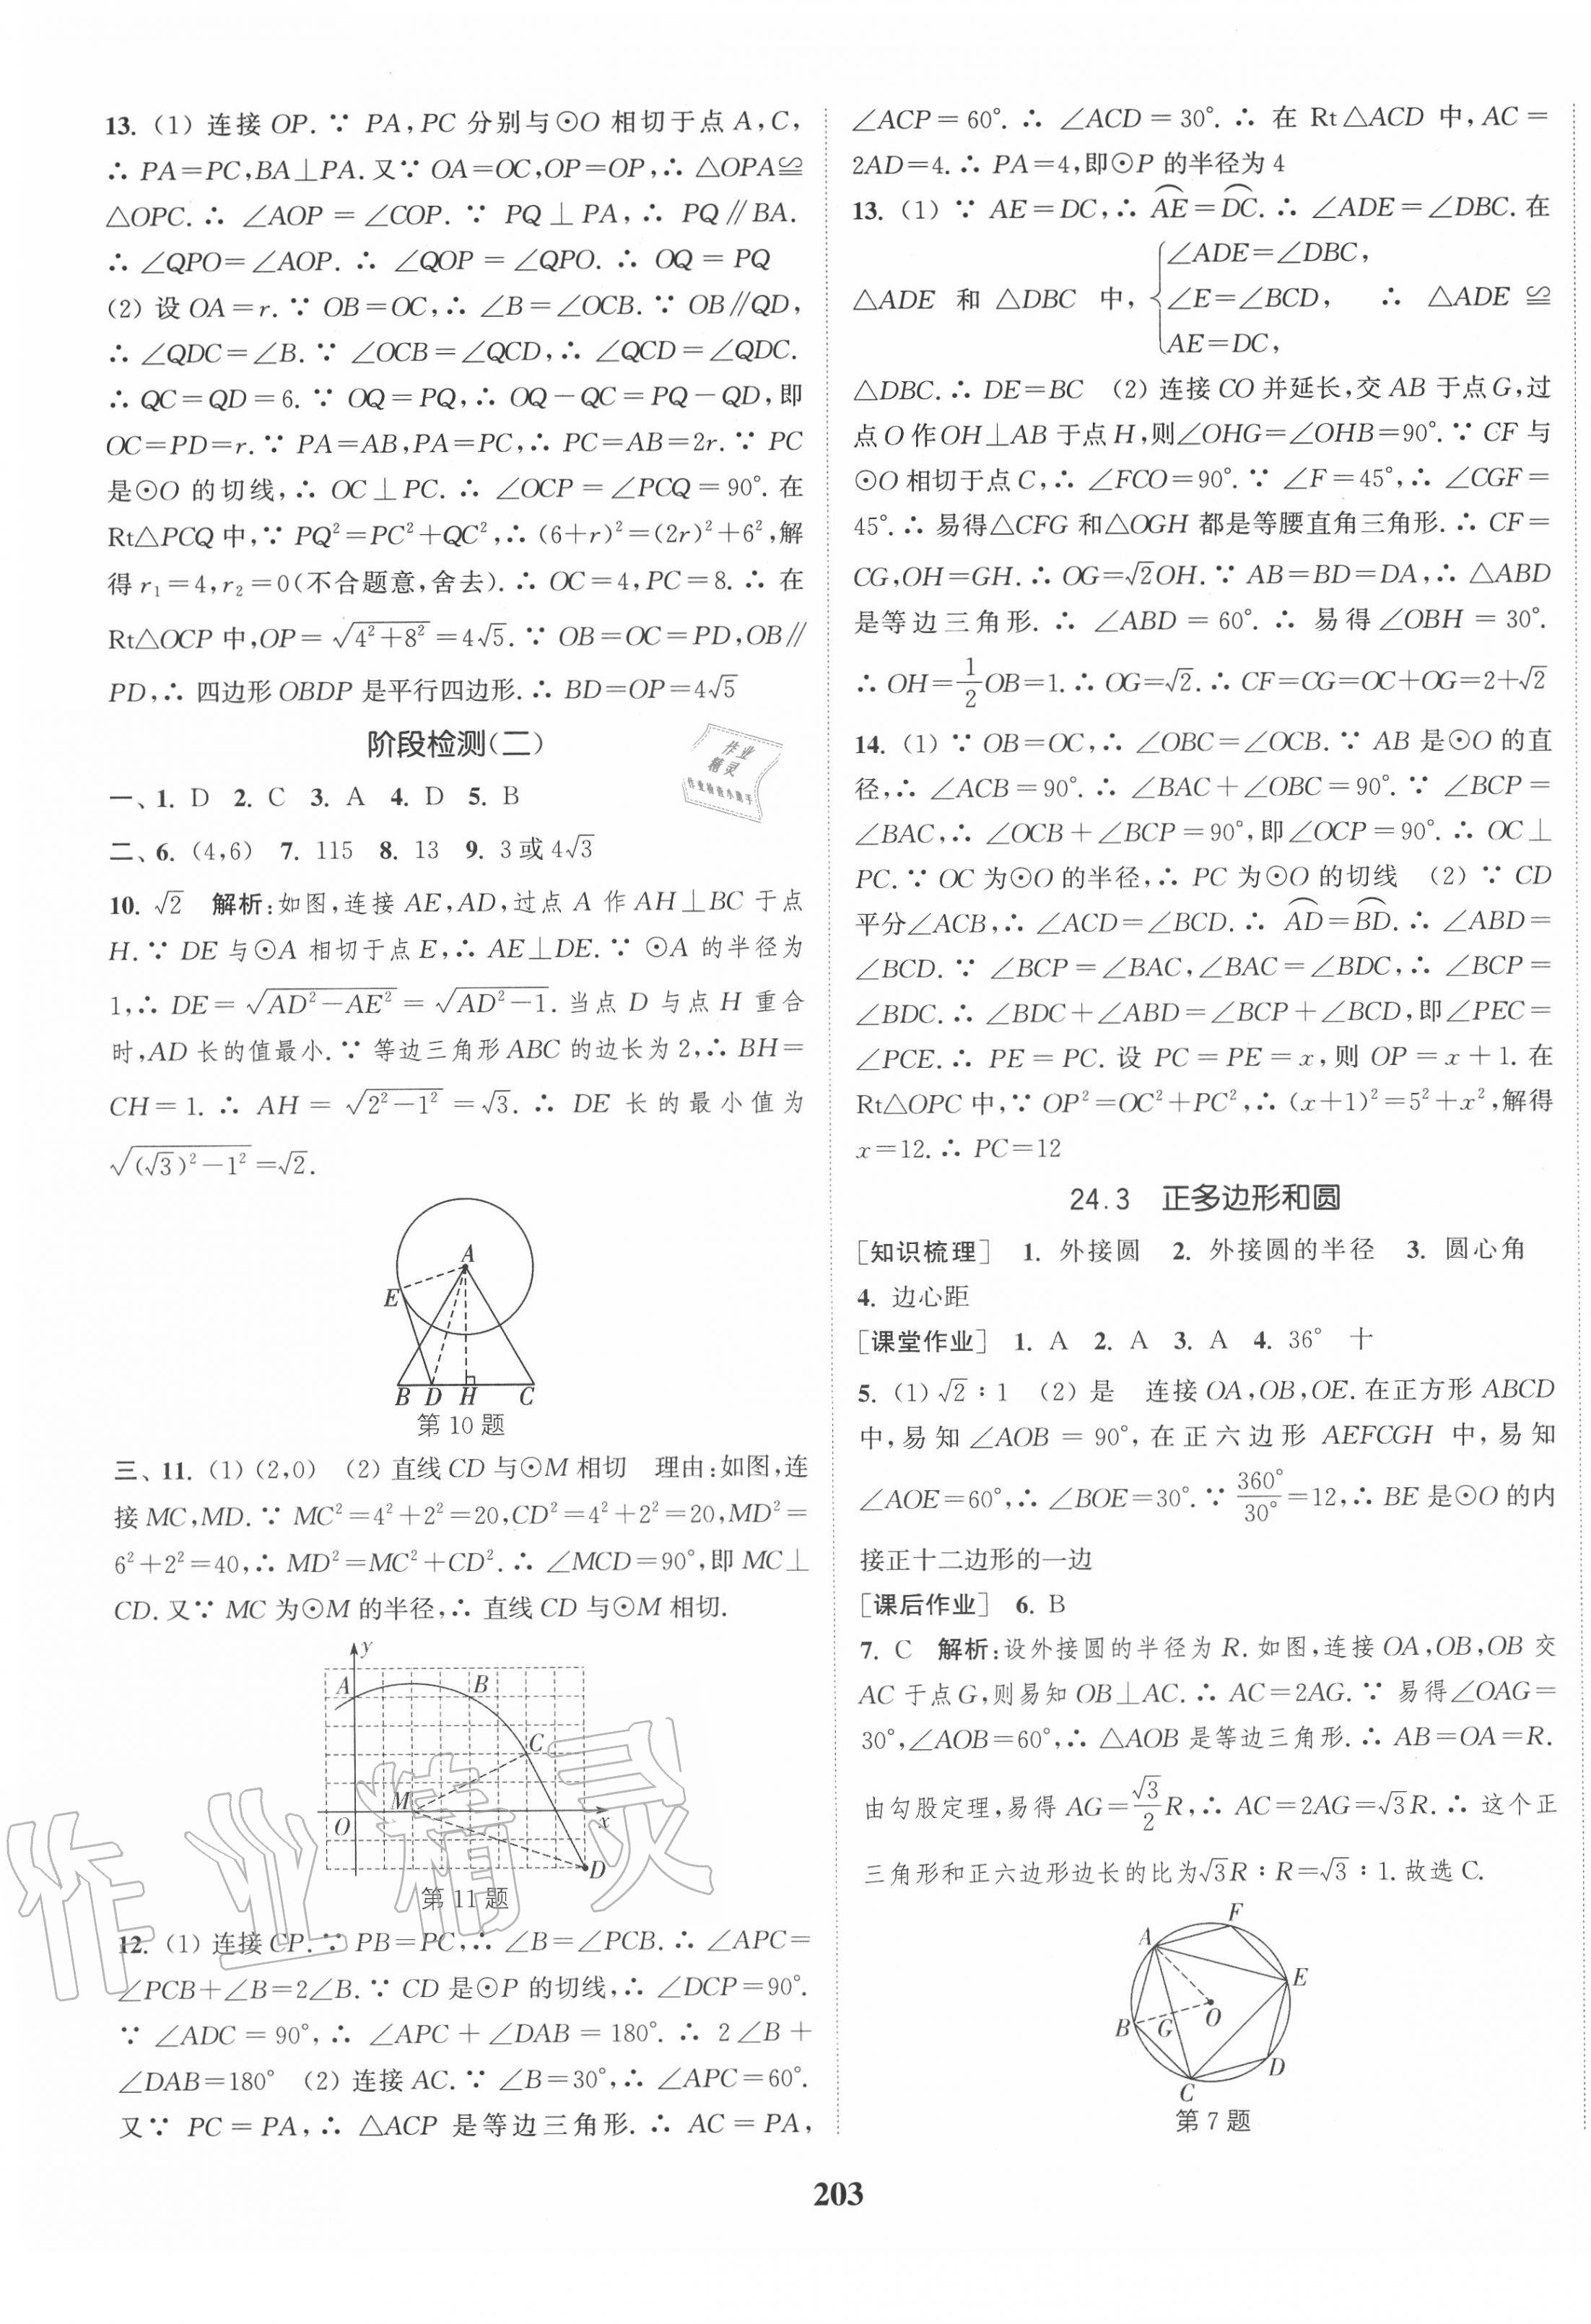 13. (1) 连接 OP. ∵ PA,PC 分别与⊙O 相切于点 A,C,
∴ PA=PC,BA⊥PA. 又∵ OA=OC,OP=OP,∴ △OPA≌
△OPC. ∴ ∠AOP=∠COP. ∵ PQ⊥PA,∴ PQ∥BA.
∴ ∠QPO=∠AOP. ∴ ∠QOP=∠QPO. ∴ OQ=PQ
(2) 设 OA=r. ∵ OB=OC,∴ ∠B=∠OCB. ∵ OB∥QD,
∴ ∠QDC=∠B. ∵ ∠OCB=∠QCD,∴ ∠QCD=∠QDC.
∴ QC=QD=6. ∵ OQ=PQ,∴ OQ-QC=PQ-QD,即
OC=PD=r. ∵ PA=AB,PA=PC,∴ PC=AB=2r. ∵ PC
是⊙O 的切线,∴ OC⊥PC. ∴ ∠OCP=∠PCQ=90°. 在
Rt△PCQ 中,∵ PQ²=PC²+QC²,∴ (6+r)²=(2r)²+6²,解
得 r₁=4,r₂=0(不合题意,舍去). ∴ OC=4,PC=8. ∴ 在
Rt△OCP 中,OP=√(4²+8²)=4√5. ∵ OB=OC=PD,OB∥
PD,∴ 四边形 OBDP 是平行四边形. ∴ BD=OP=4√5
阶段检测(二)
作业
精灵
作业检查小助手
一、1. D 2. C 3. A 4. D 5. B
二、6. (4,6) 7. 115 8. 13 9. 3或4√3
10. √2 解析:如图,连接 AE,AD,过点 A 作 AH⊥BC 于点
H. ∵ DE 与⊙A 相切于点 E,∴ AE⊥DE. ∵ ⊙A 的半径为
1,∴ DE=√(AD²-AE²)=√(AD²-1). 当点 D 与点 H 重合
时,AD 长的值最小. ∵ 等边三角形 ABC 的边长为 2,∴ BH=
CH=1. ∴ AH=√(2²-1²)=√3. ∴ DE 长的最小值为
√((√3)²-1²)=√2.
A
E
B D H C
第 10 题
三、11. (1) (2,0) (2) 直线 CD 与⊙M 相切 理由:如图,连
接 MC,MD. ∵ MC²=4²+2²=20,CD²=4²+2²=20,MD²=
6²+2²=40,∴ MD²=MC²+CD². ∴ ∠MCD=90°,即 MC⊥
CD. 又∵ MC 为⊙M 的半径,∴ 直线 CD 与⊙M 相切.
y
A B
C
M
O x
D
第 11 题
作业精灵
12. (1) 连接 CP. ∵ PB=PC,∴ ∠B=∠PCB. ∴ ∠APC=
∠PCB+∠B=2∠B. ∵ CD 是⊙P 的切线,∴ ∠DCP=90°.
∵ ∠ADC=90°,∴ ∠APC+∠DAB=180°. ∴ 2∠B+
∠DAB=180° (2) 连接 AC. ∵ ∠B=30°,∴ ∠APC=60°.
又∵ PC=PA,∴ △ACP 是等边三角形. ∴ AC=PA,
∠ACP=60°. ∴ ∠ACD=30°. ∴ 在 Rt△ACD 中,AC=
2AD=4. ∴ PA=4,即⊙P 的半径为 4
13. (1) ∵ AE=DC,∴ A͡E=D͡C. ∴ ∠ADE=∠DBC. 在
∠ADE=∠DBC,
△ADE 和 △DBC 中,{∠E=∠BCD, ∴ △ADE≌
AE=DC,
△DBC. ∴ DE=BC (2) 连接 CO 并延长,交 AB 于点 G,过
点 O 作 OH⊥AB 于点 H,则∠OHG=∠OHB=90°. ∵ CF 与
⊙O 相切于点 C,∴ ∠FCO=90°. ∵ ∠F=45°,∴ ∠CGF=
45°. ∴ 易得△CFG 和△OGH 都是等腰直角三角形. ∴ CF=
CG,OH=GH. ∴ OG=√2OH. ∵ AB=BD=DA,∴ △ABD
是等边三角形. ∴ ∠ABD=60°. ∴ 易得∠OBH=30°.
∴ OH=1/2OB=1. ∴ OG=√2. ∴ CF=CG=OC+OG=2+√2
14. (1) ∵ OB=OC,∴ ∠OBC=∠OCB. ∵ AB 是⊙O 的直
径,∴ ∠ACB=90°. ∴ ∠BAC+∠OBC=90°. ∵ ∠BCP=
∠BAC,∴ ∠OCB+∠BCP=90°,即∠OCP=90°. ∴ OC⊥
PC. ∵ OC 为⊙O 的半径,∴ PC 为⊙O 的切线 (2) ∵ CD
平分∠ACB,∴ ∠ACD=∠BCD. ∴ A͡D=B͡D. ∴ ∠ABD=
∠BCD. ∵ ∠BCP=∠BAC,∠BAC=∠BDC,∴ ∠BCP=
∠BDC. ∴ ∠BDC+∠ABD=∠BCP+∠BCD,即∠PEC=
∠PCE. ∴ PE=PC. 设 PC=PE=x,则 OP=x+1. 在
Rt△OPC 中,∵ OP²=OC²+PC²,∴ (x+1)²=5²+x²,解得
x=12. ∴ PC=12
24.3 正多边形和圆
[知识梳理] 1. 外接圆 2. 外接圆的半径 3. 圆心角
4. 边心距
[课堂作业] 1. A 2. A 3. A 4. 36° 十
5. (1) √2∶1 (2) 是 连接 OA,OB,OE. 在正方形 ABCD
中,易知∠AOB=90°,在正六边形 AEFCGH 中,易知
∠AOE=60°,∴ ∠BOE=30°. ∵ 360°/30°=12,∴ BE 是⊙O 的内
接正十二边形的一边
[课后作业] 6. B
7. C 解析:设外接圆的半径为 R. 如图,连接 OA,OB,OB 交
AC 于点 G,则易知 OB⊥AC. ∴ AC=2AG. ∵ 易得∠OAG=
30°,∠AOB=60°,∴ △AOB 是等边三角形. ∴ AB=OA=R.
由勾股定理,易得 AG=√3/2R,∴ AC=2AG=√3R. ∴ 这个正
三角形和正六边形边长的比为√3R∶R=√3∶1. 故选 C.
F
A
E
O
B G
D
C
第 7 题
203